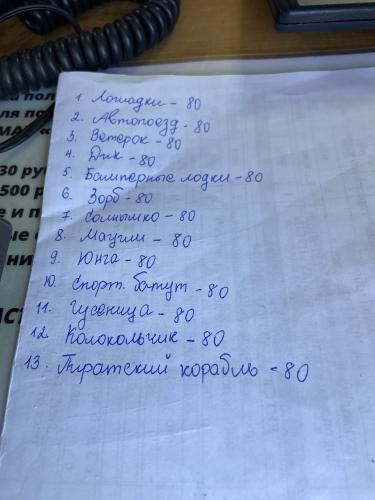 а пол
ля по
МА «
30 руб
500 р
е и п
ые
ени
ІСТ
1 Лошадки - 80
2. Автопоезд - 80
3. Ветерок - 80
4. Дик - 80
5. Бамперные лодки - 80
6. Зорб - 80
7. Солнышко - 80
8. Маугли - 80
9. Юнга - 80
10. Спорт. батут - 80
11. Гусеница - 80
12 Колокольчик - 80
13. Пиратский корабль - 80